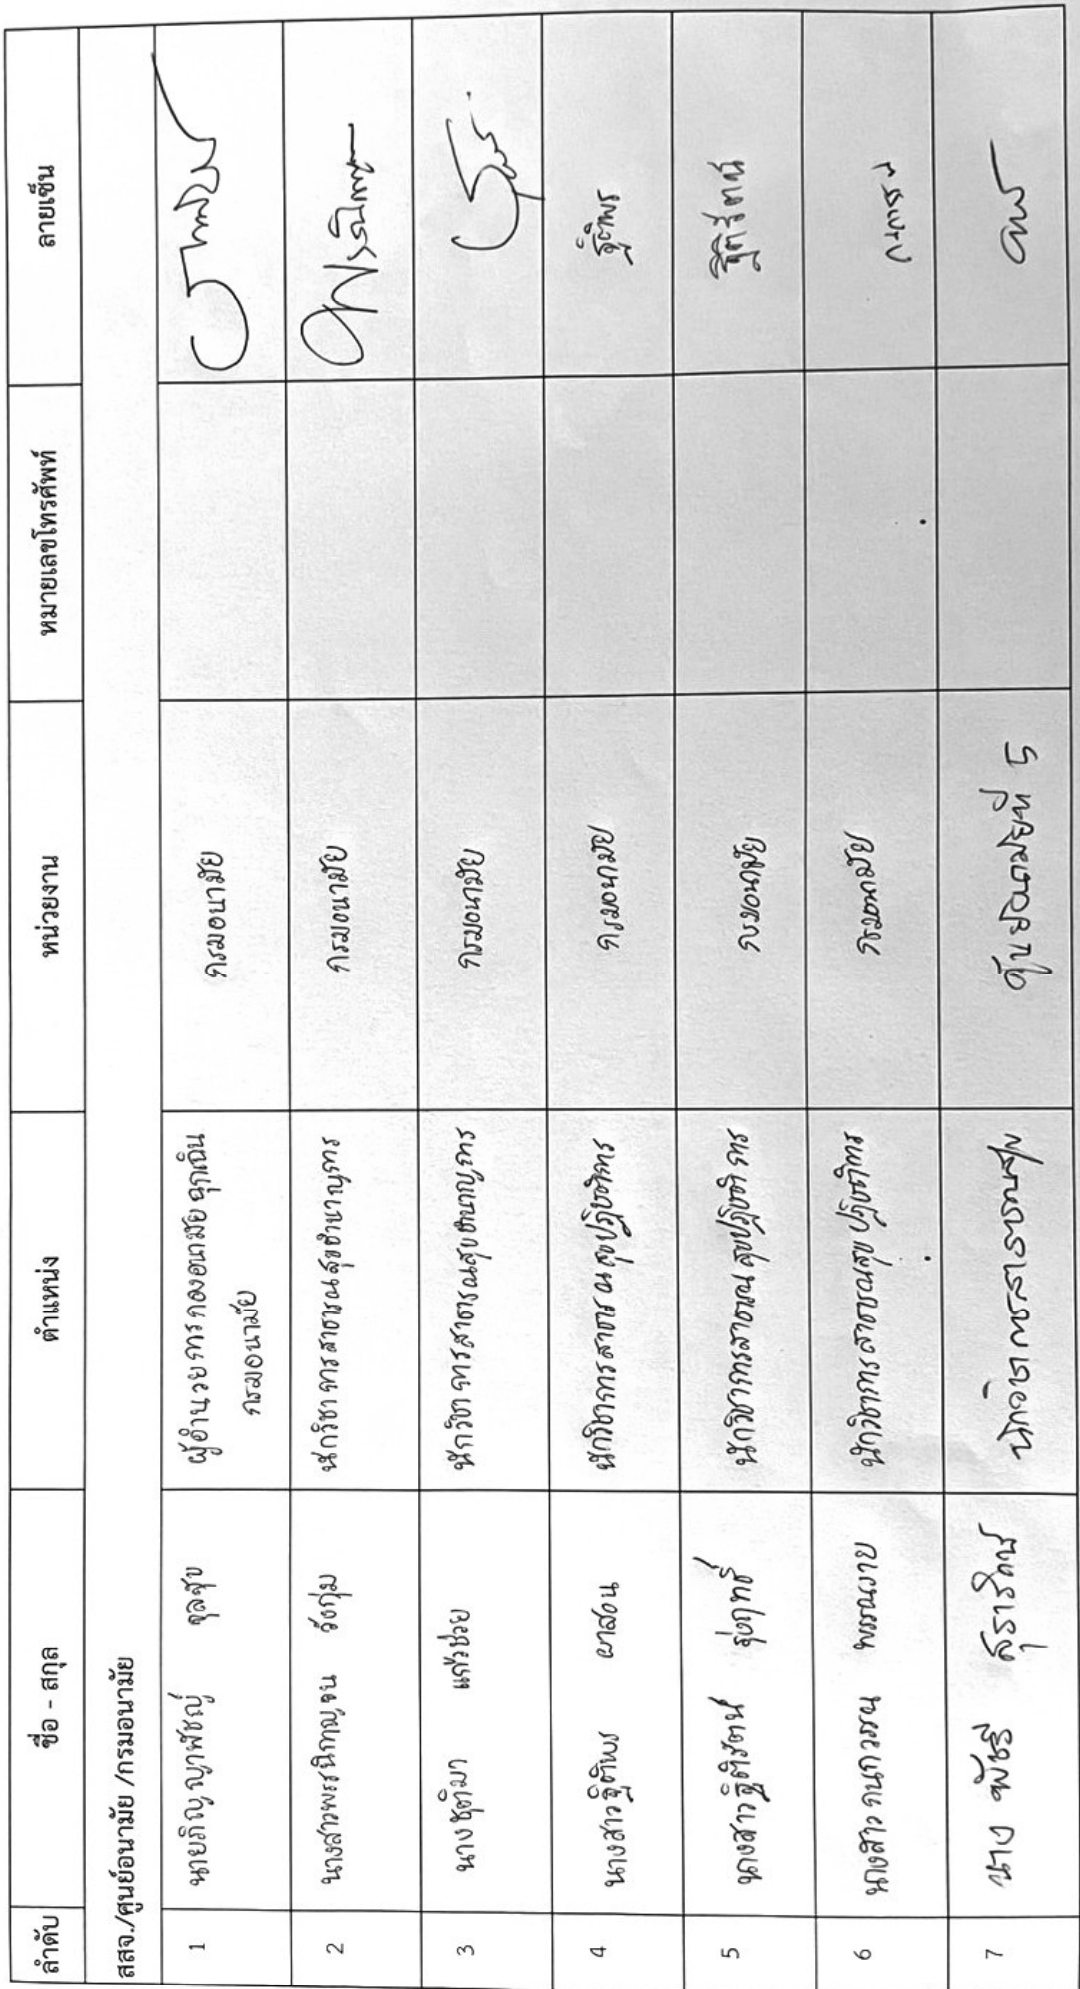 ลำดับ ชื่อ - สกุล ตำแหน่ง หน่วยงาน หมายเลขโทรศัพท์ ลายเซ็น
สสจ./ศูนย์อนามัย /กรมอนามัย
1 นายภิญญาพัชญ์ จุลสุข ผู้อำนวยการกองอนามัยฉุกเฉิน กรมอนามัย
กรมอนามัย
2 นางสาวพรรนิกาญจน วังกุ่ม นักวิชาการสาธารณสุขชำนาญการ กรมอนามัย
3 นางชุติมา แก้วช่วย นักวิชาการสาธารณสุขชำนาญการ กรมอนามัย
4 นางสาวฐิติพร ผาสอน นักวิชาการสาธารณสุขปฏิบัติการ กรมอนามัย ฐิติพร
5 นางสาวฐิติรัตน์ นักวิชาการสาธารณสุขปฏิบัติการ กรมอนามัย ฐิติรัตน์
6 นางสาวกนกวรรณ พรรณงาบ นักวิชาการสาธารณสุขปฏิบัติการ กรมอนามัย กนกวรรณ
7 นาง พัชรี นักวิชาการสาธารณสุข ศูนย์อนามัยที่ 5